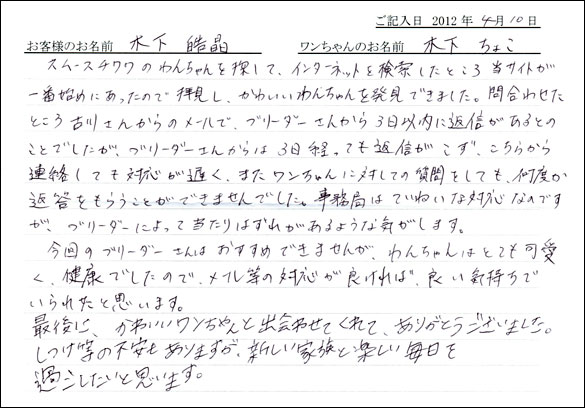 ご記入日 2012 年 4 月 10 日
お客様のお名前 木下 皓晶 ワンちゃんのお名前 木下 ちょこ
スムースチワワのわんちゃんを探して、インターネットを検索したところ当サイトが
一番始めにあったので拝見し、かわいいわんちゃんを発見できました。問合わせた
ところ古川さんからのメールで、ブリーダーさんから3日以内に返信があるとの
ことでしたが、ブリーダーさんからは3日経っても返信がこず、こちらから
連絡しても対応が遅く、またワンちゃんに対しての質問をしても、何度か
返答をもらうことができませんでした。事務局はていねいな対応なのです
が、ブリーダーによって当たりはずれがあるような気がします。
今回のブリーダーさんはおすすめできませんが、わんちゃんはとても可愛
く、健康でしたので、メール等の対応が良ければ、良い気持ちで
いられたと思います。
最後に、かわいいワンちゃんと出会わせてくれて、ありがとうございました。
しつけ等の不安もありますが、新しい家族と楽しい毎日を
過ごしたいと思います。